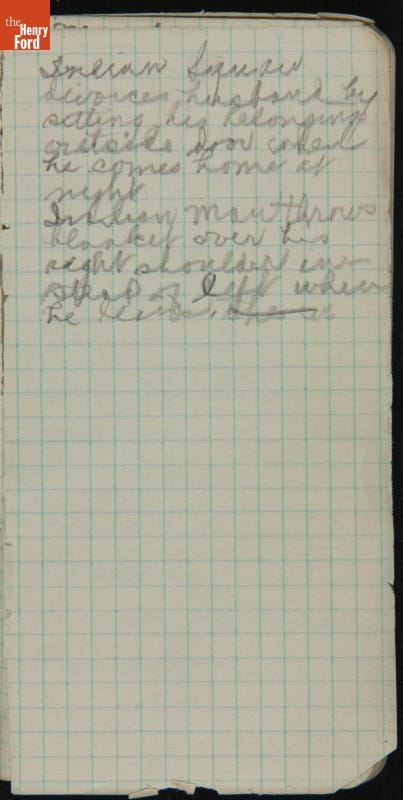 the
Henry
Ford
Indian Squaw
divorces husband by
setting his belongings
outside door when
he comes home at
night
Indian man throws
blanket over his
right shoulder in-
stead of left when
he